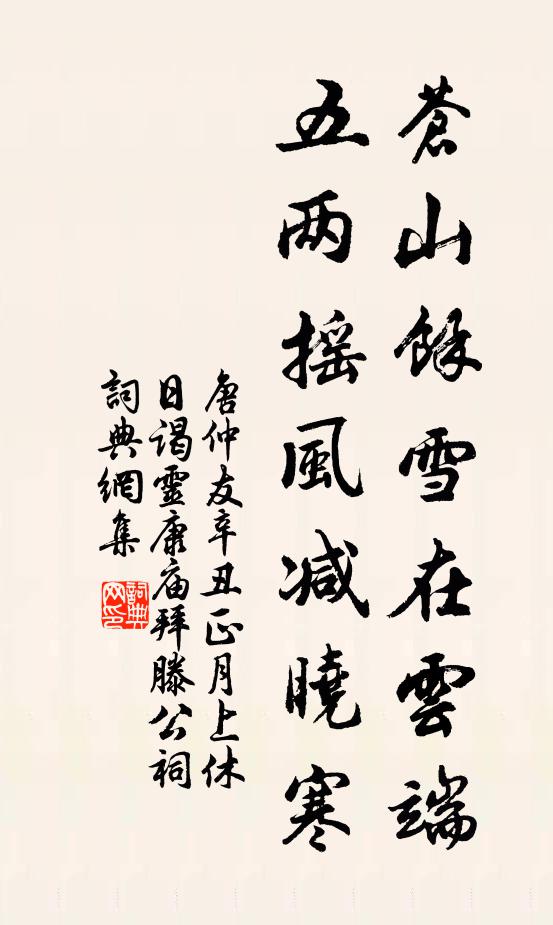 蒼山餘雪在雲端
五两摇風减曉寒
唐仲友辛丑正月上休
日谒靈康庙拜滕公祠
詞典網集
詞典
网印